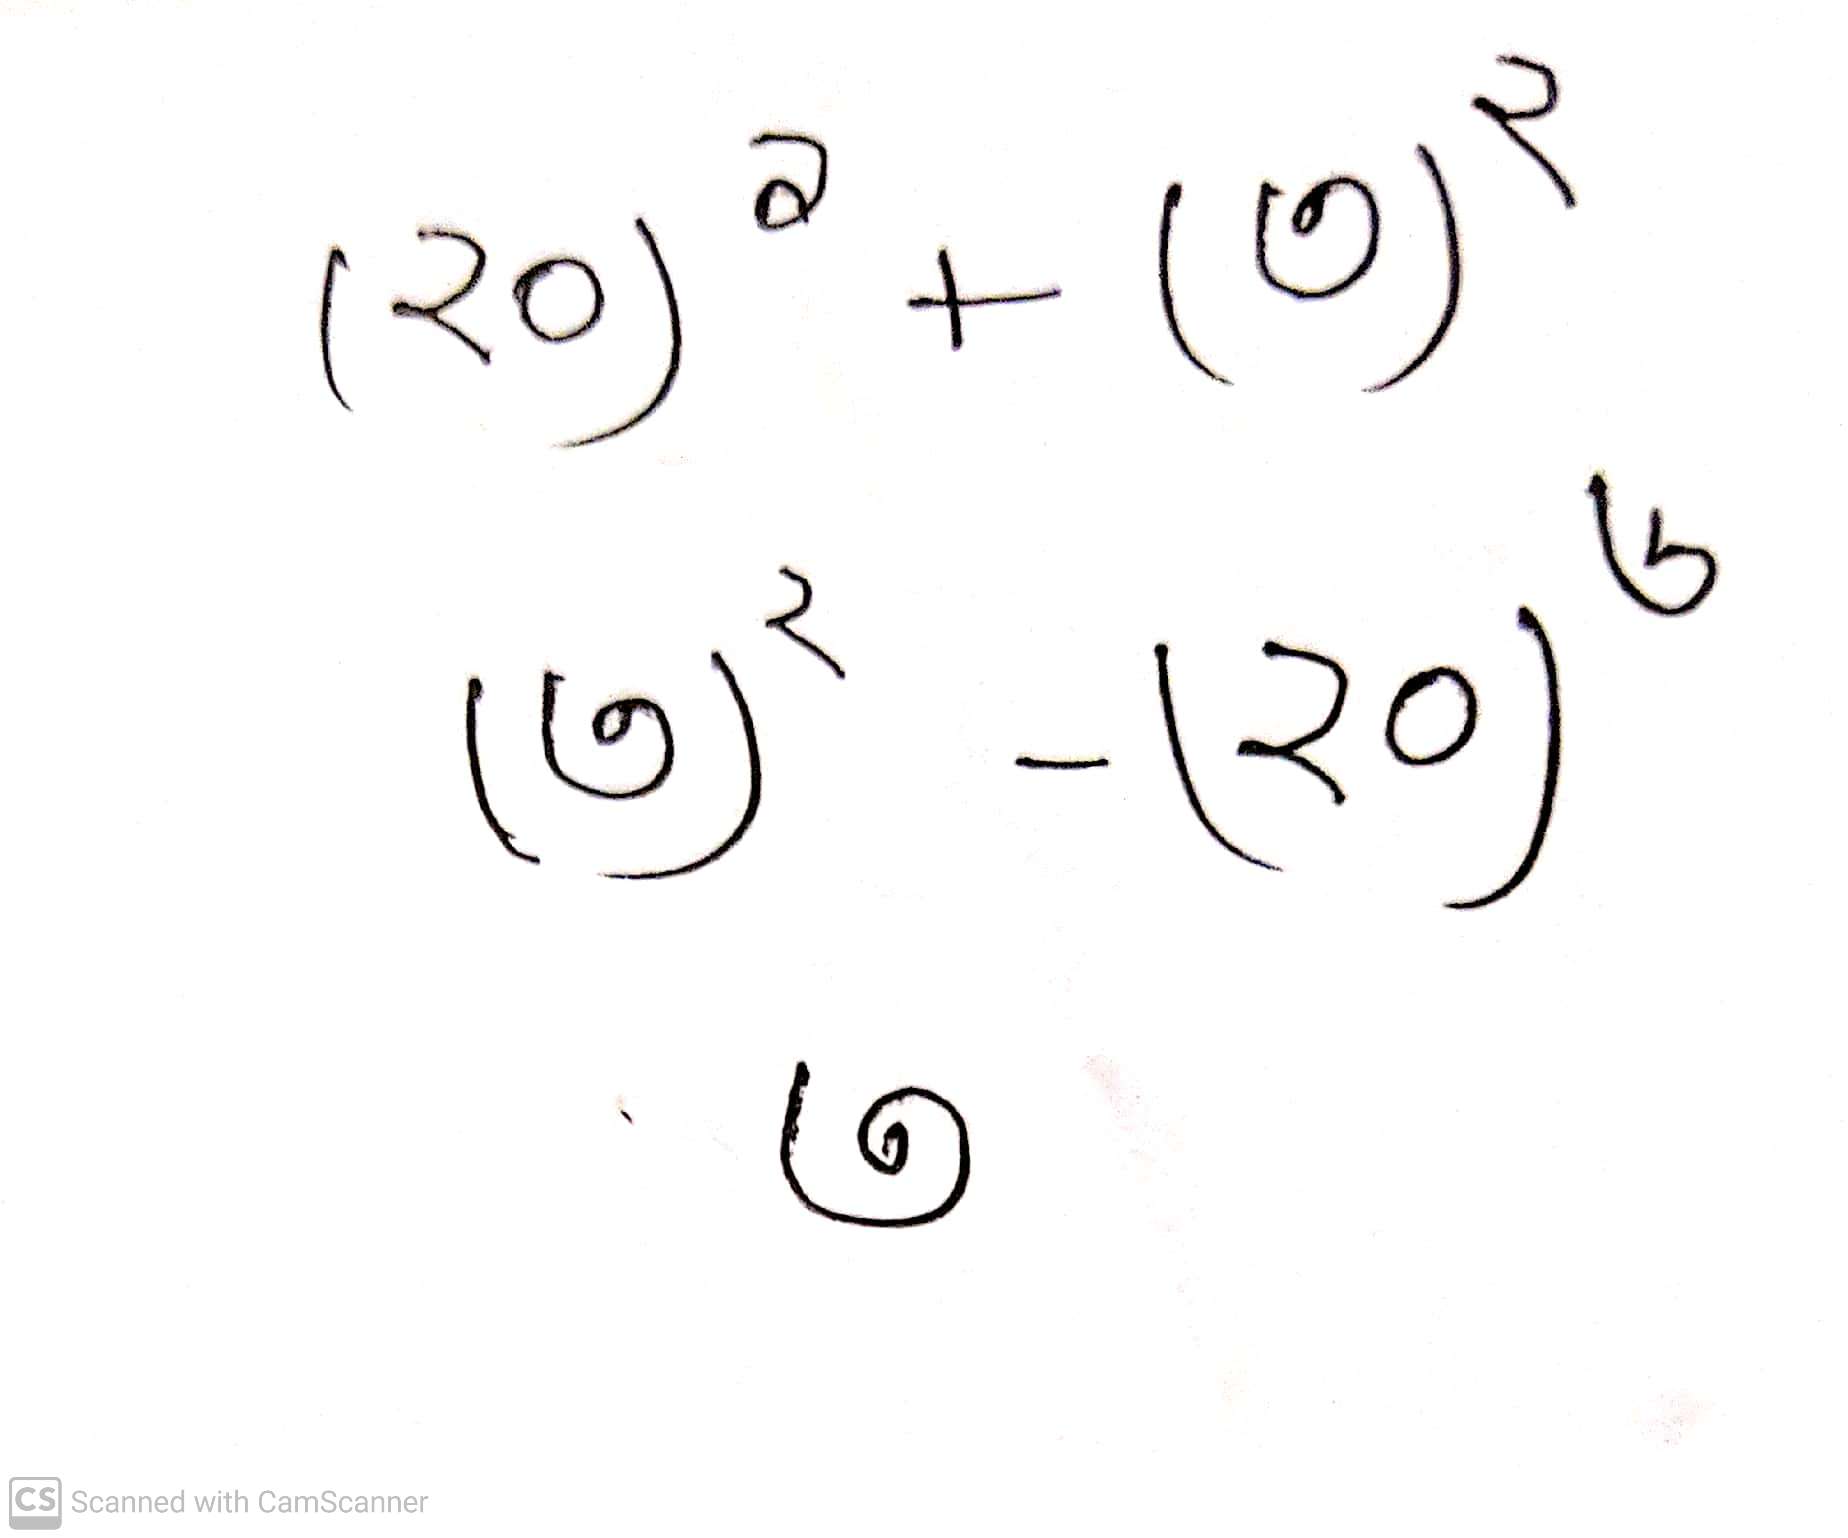 (২০)^১ + (৩)^২
(৩)^২ - (২০)^৬
৩
CS Scanned with CamScanner